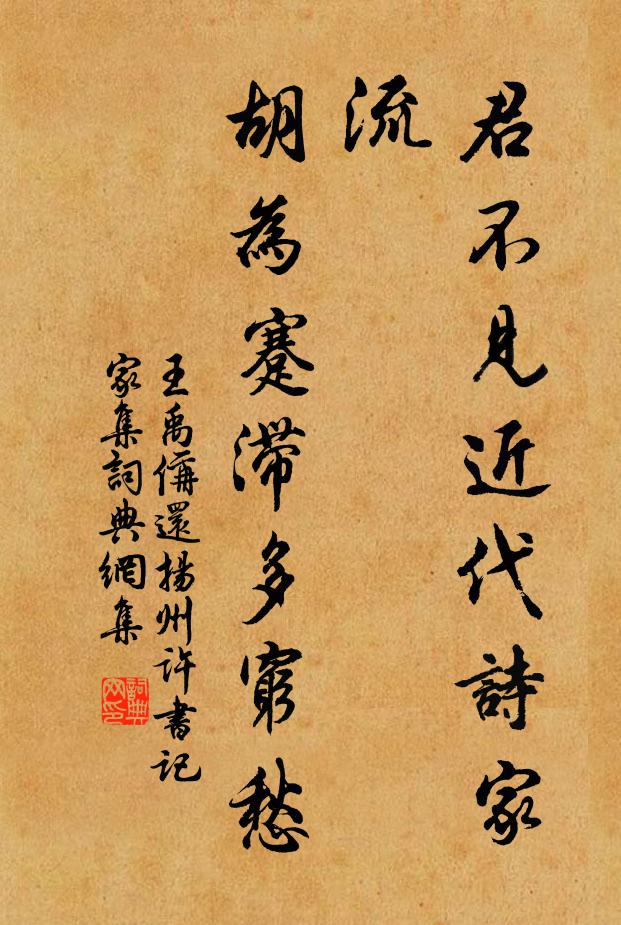 君不見近代詩家
流
胡為蹇滯多窮愁
王禹偁還揚州許書記
家集詞典網集
詞典
网印